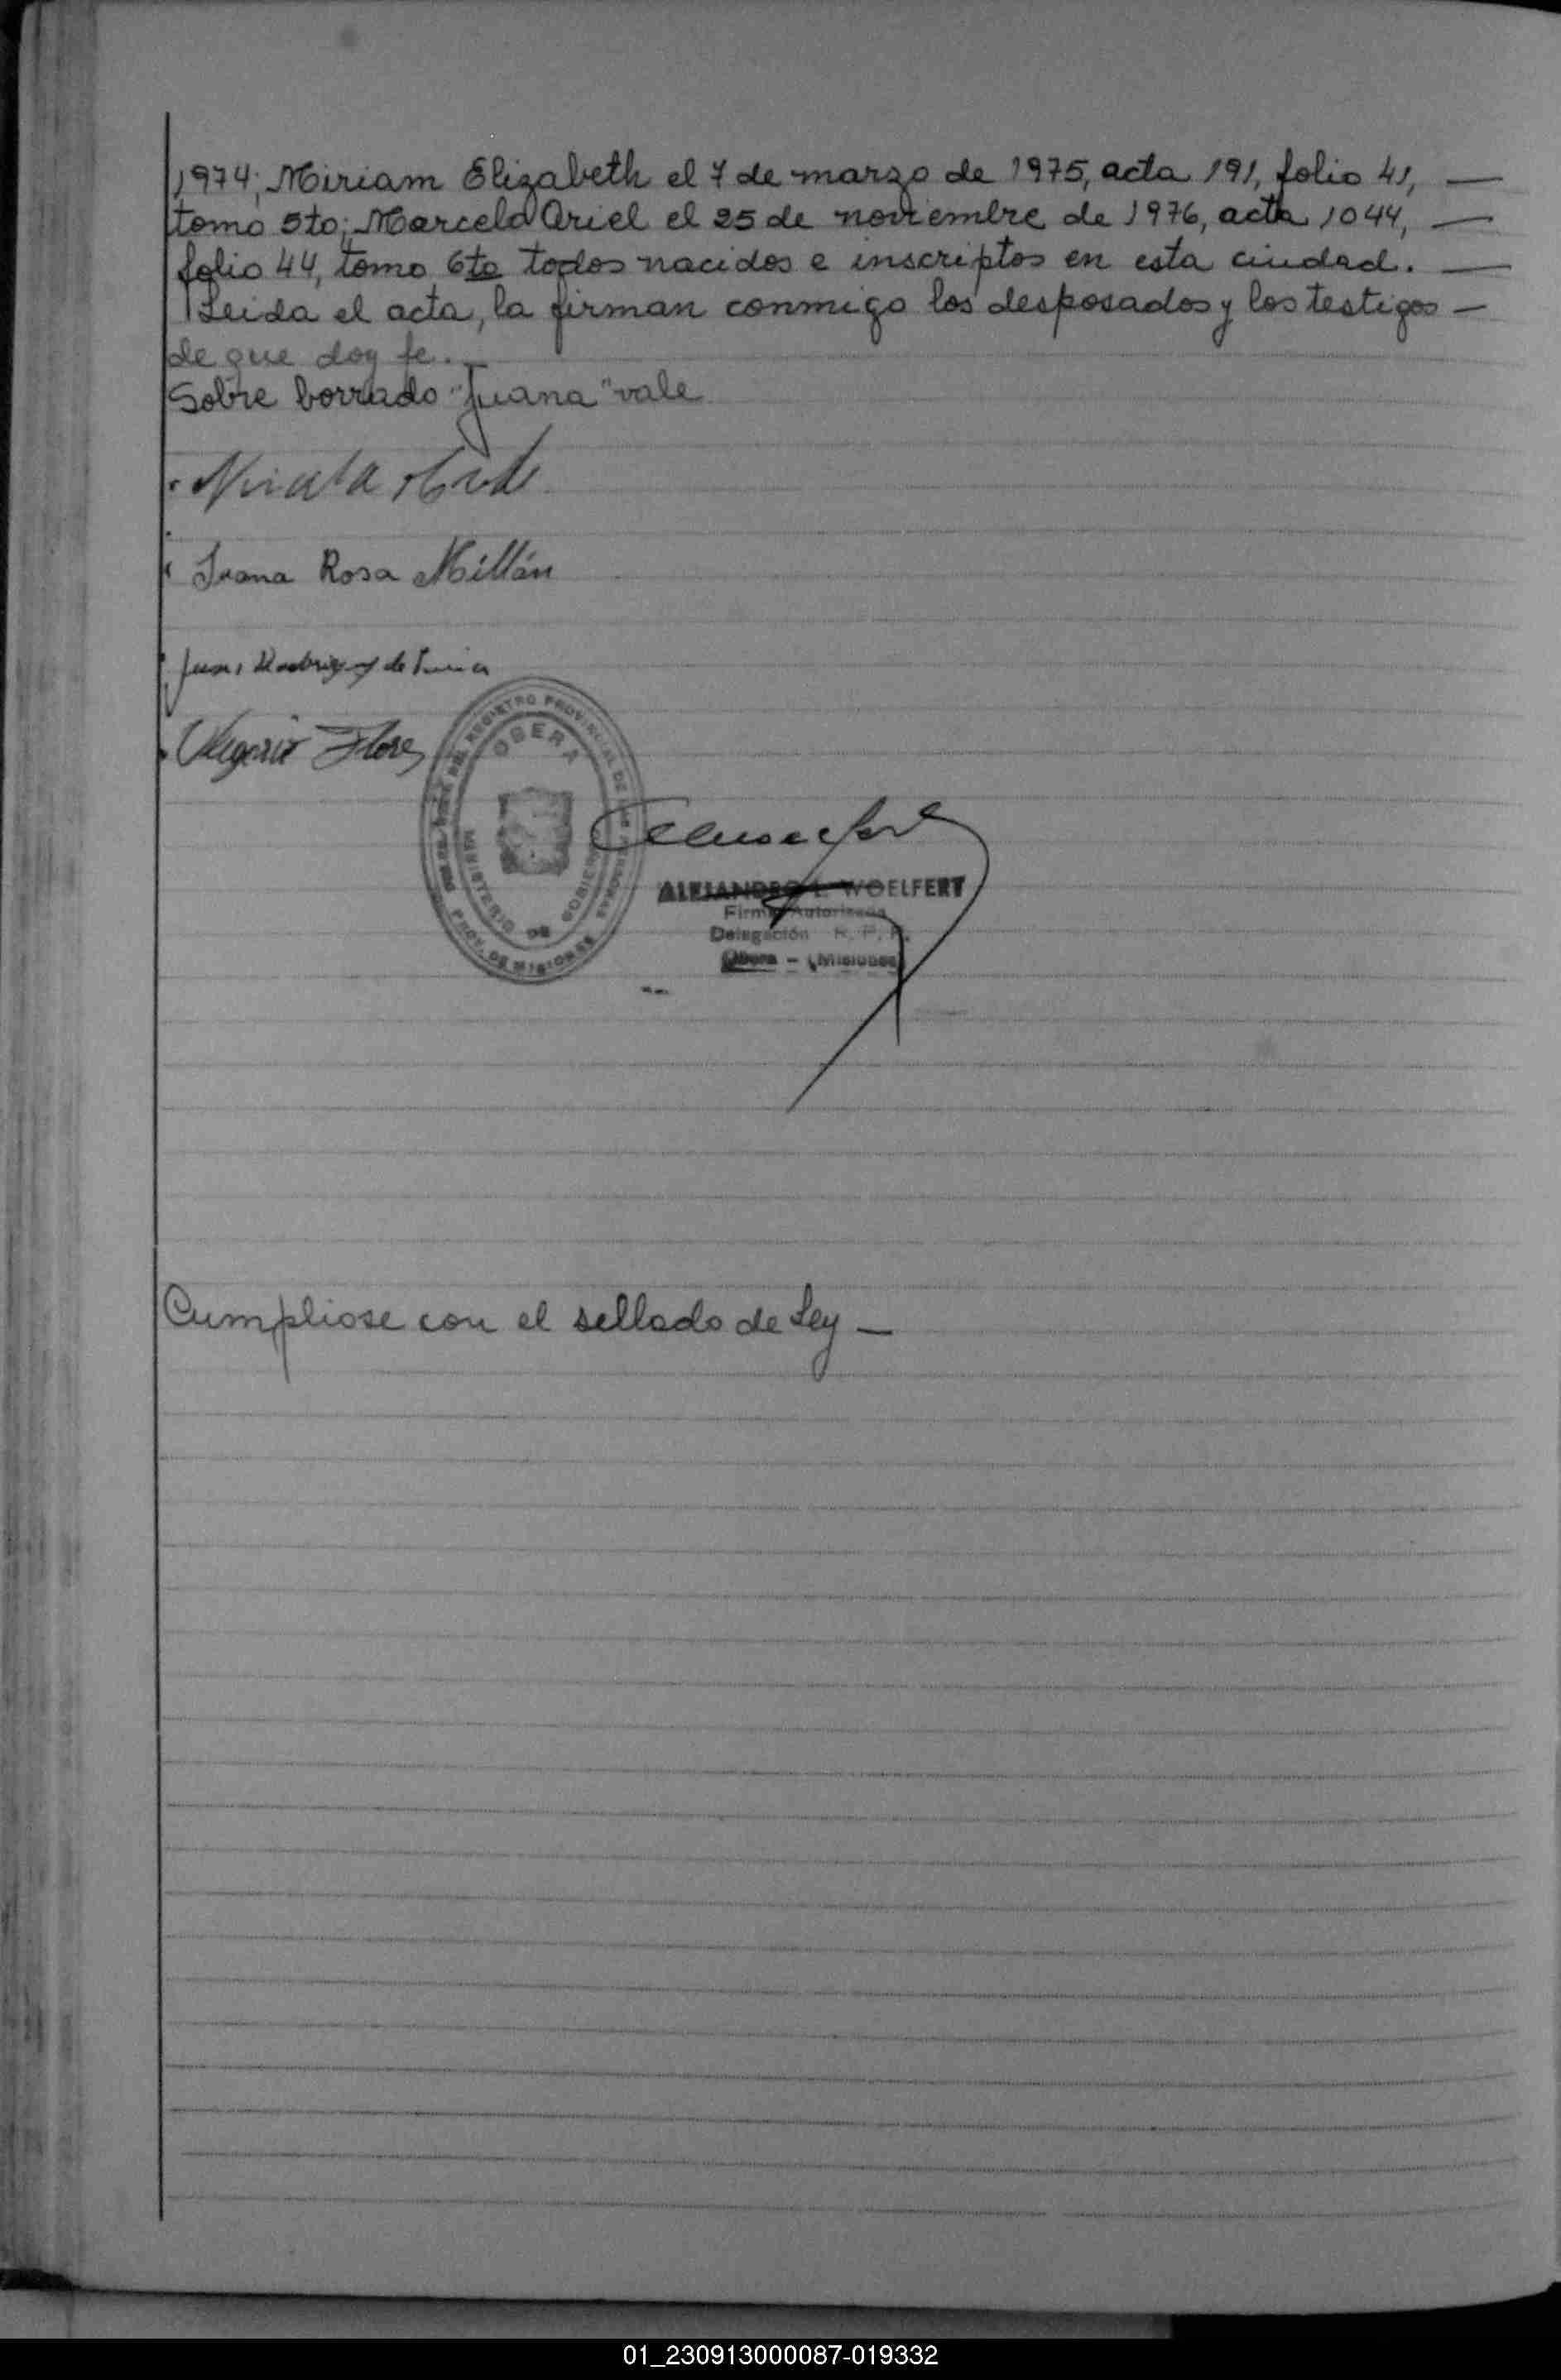 1974; Miriam Elizabeth el 7 de marzo de 1975, acta 191, folio 41, —
tomo 5to; Marcelo Ariel el 25 de noviembre de 1976, acta 1044, —
folio 44, tomo 6to todos nacidos e inscriptos en esta ciudad. —
Leida el acta, la firman conmigo los desposados y los testigos —
de que doy fe.
Sobre borrado "Juana" vale
Juana Rosa Millán
Rodriguez de
Flores
REGISTRO PROVINCIAL DE LAS PERSONAS
OBERA
MINISTERIO DE GOBIERNO
PROV. DE MISIONES
ALEJANDRO L. WOELFERT
Firma Autorizada
Delegación R. P. P.
Obera - (Misiones)
Cumpliose con el sellado de Ley —
01_230913000087-019332